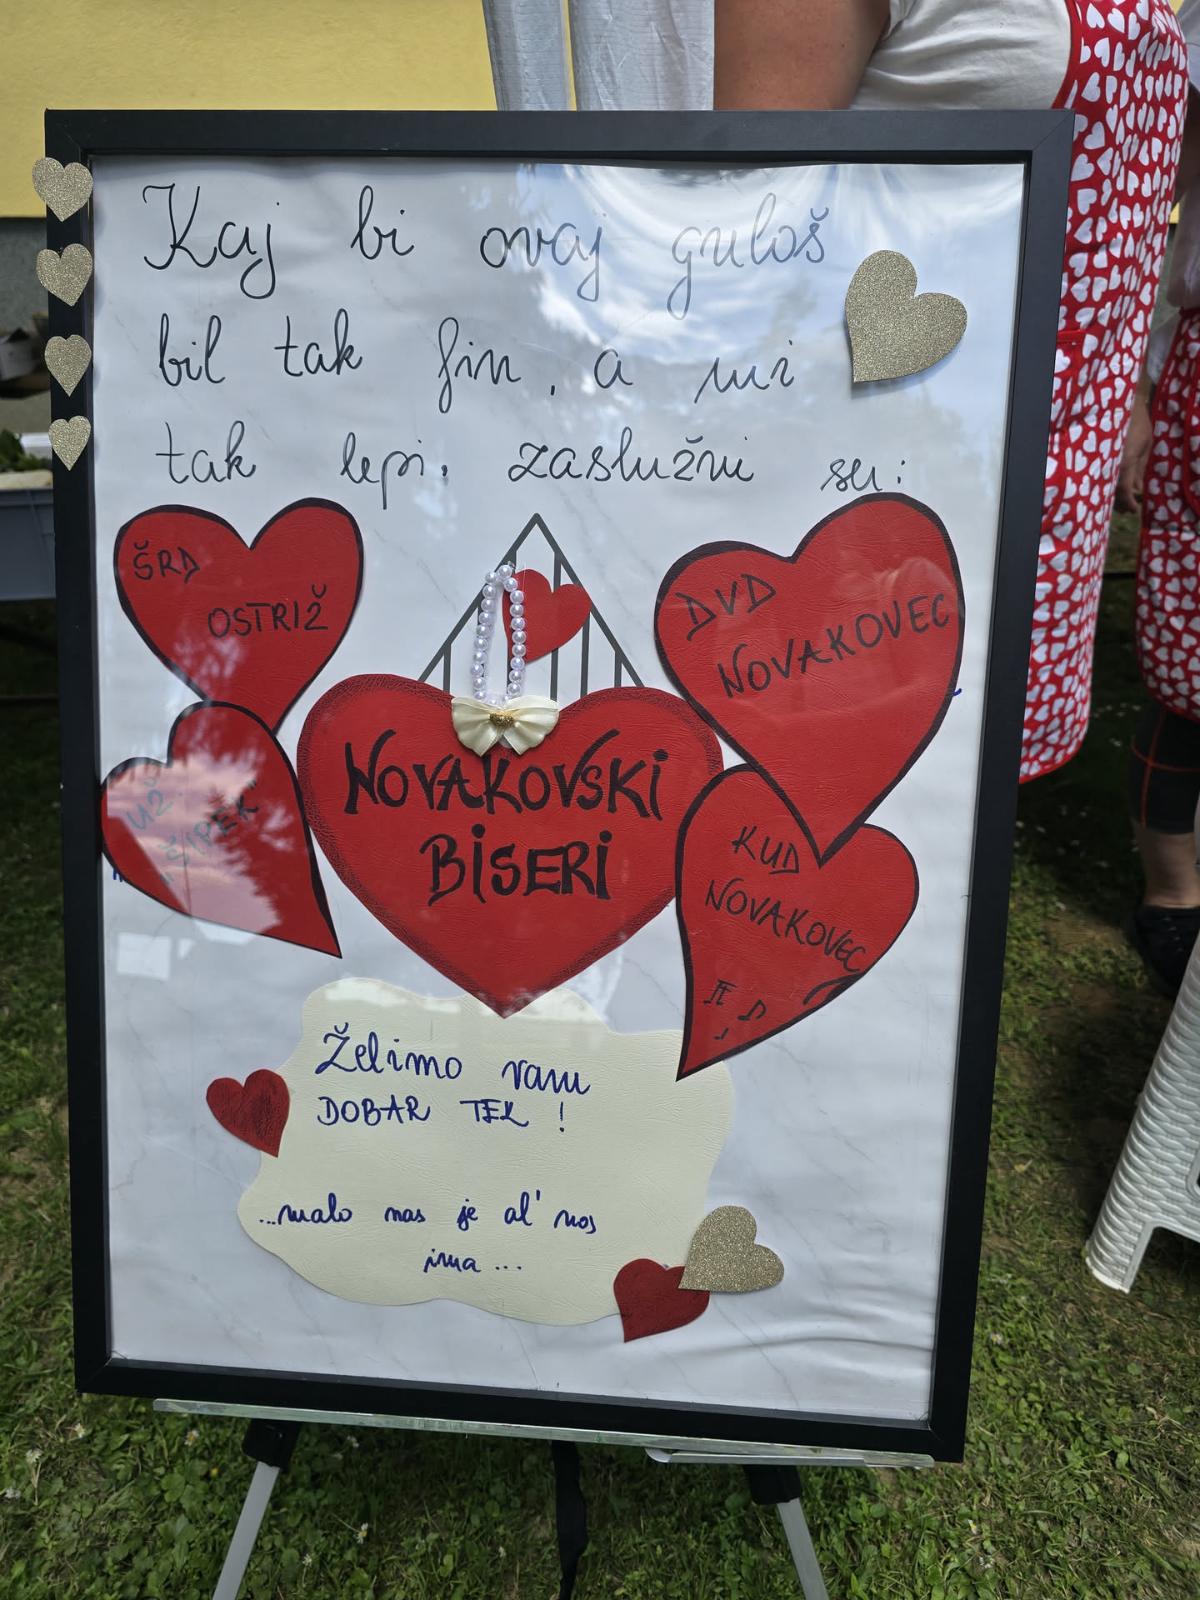 Kaj bi ovaj guloš
bil tak fin, a mi
tak lepi, zaslužni su:
ŠRD
OSTRIŽ
DVD
NOVAKOVEC
NOVAKOVSKI
BISERI
UŽ
"ŠIPEK"
KUD
NOVAKOVEC
Želimo vam
DOBAR TEK!
...malo nas je al' nas
ima...